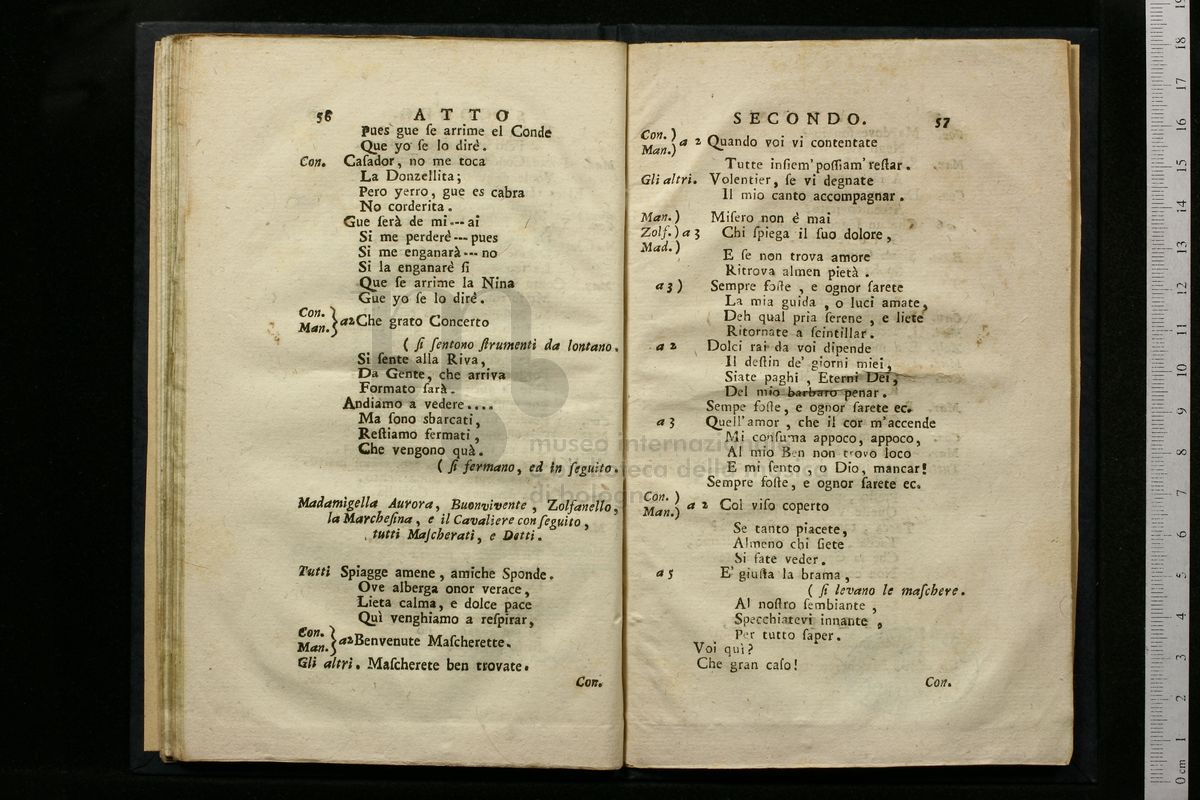 56 ATTO
Pues gue ſe arrime el Conde
Que yo ſe lo dirè.
Con. Caſador, no me toca
La Donzellita;
Pero yerro, gue es cabra
No corderita.
Gue ſerà de mi --- ai
Si me perderè --- pues
Si me enganarà --- no
Si la enganarè ſi
Que ſe arrime la Nina
Gue yo ſe lo dirè.
Con.
Man.} a2 Che grato Concerto
( ſi ſentono ſtrumenti da lontano.
Si ſente alla Riva,
Da Gente, che arriva
Formato ſarà.
Andiamo a vedere....
Ma ſono sbarcati,
Reſtiamo fermati,
Che vengono quà.
( ſi fermano, ed in ſeguito.
Madamigella Aurora, Buonvivente, Zolfanello,
la Marcheſina, e il Cavaliere con ſeguito,
tutti Maſcherati, e Detti.
Tutti Spiagge amene, amiche Sponde.
Ove alberga onor verace,
Lieta calma, e dolce pace
Quì venghiamo a reſpirar,
Con.
Man.} a2 Benvenute Maſcherette.
Gli altri. Maſcherete ben trovate.
Con.
SECONDO. 57
Con. )
Man.) a 2 Quando voi vi contentate
Tutte inſiem' poſſiam' reſtar.
Gli altri. Volentier, ſe vi degnate
Il mio canto accompagnar.
Man. ) Miſero non è mai
Zolf. ) a 3 Chi ſpiega il ſuo dolore,
Mad. )
E ſe non trova amore
Ritrova almen pietà.
a 3 ) Sempre foſte, e ognor ſarete
La mia guida, o luci amate,
Deh qual pria ſerene, e liete
Ritornate a ſcintillar.
a 2 Dolci rai da voi dipende
Il deſtin de' giorni miei,
Siate paghi, Eterni Dei,
Del mio barbaro penar.
Sempe foſte, e ognor ſarete ec.
a 3 Quell'amor, che il cor m'accende
Mi conſuma appoco, appoco,
Al mio Ben non trovo loco
E mi ſento, o Dio, mancar!
Sempre foſte, e ognor ſarete ec.
Con. )
Man.) a 2 Col viſo coperto
Se tanto piacete,
Almeno chi ſiete
Si fate veder.
a 5 E' giuſta la brama,
( ſi levano le maſchere.
Al noſtro ſembiante,
Specchiatevi innante,
Per tutto ſaper.
Voi quì?
Che gran caſo!
Con.
museo internazionale
e biblioteca della musica
di bologna
0 cm 1 2 3 4 5 6 7 8 9 10 11 12 13 14 15 16 17 18 19